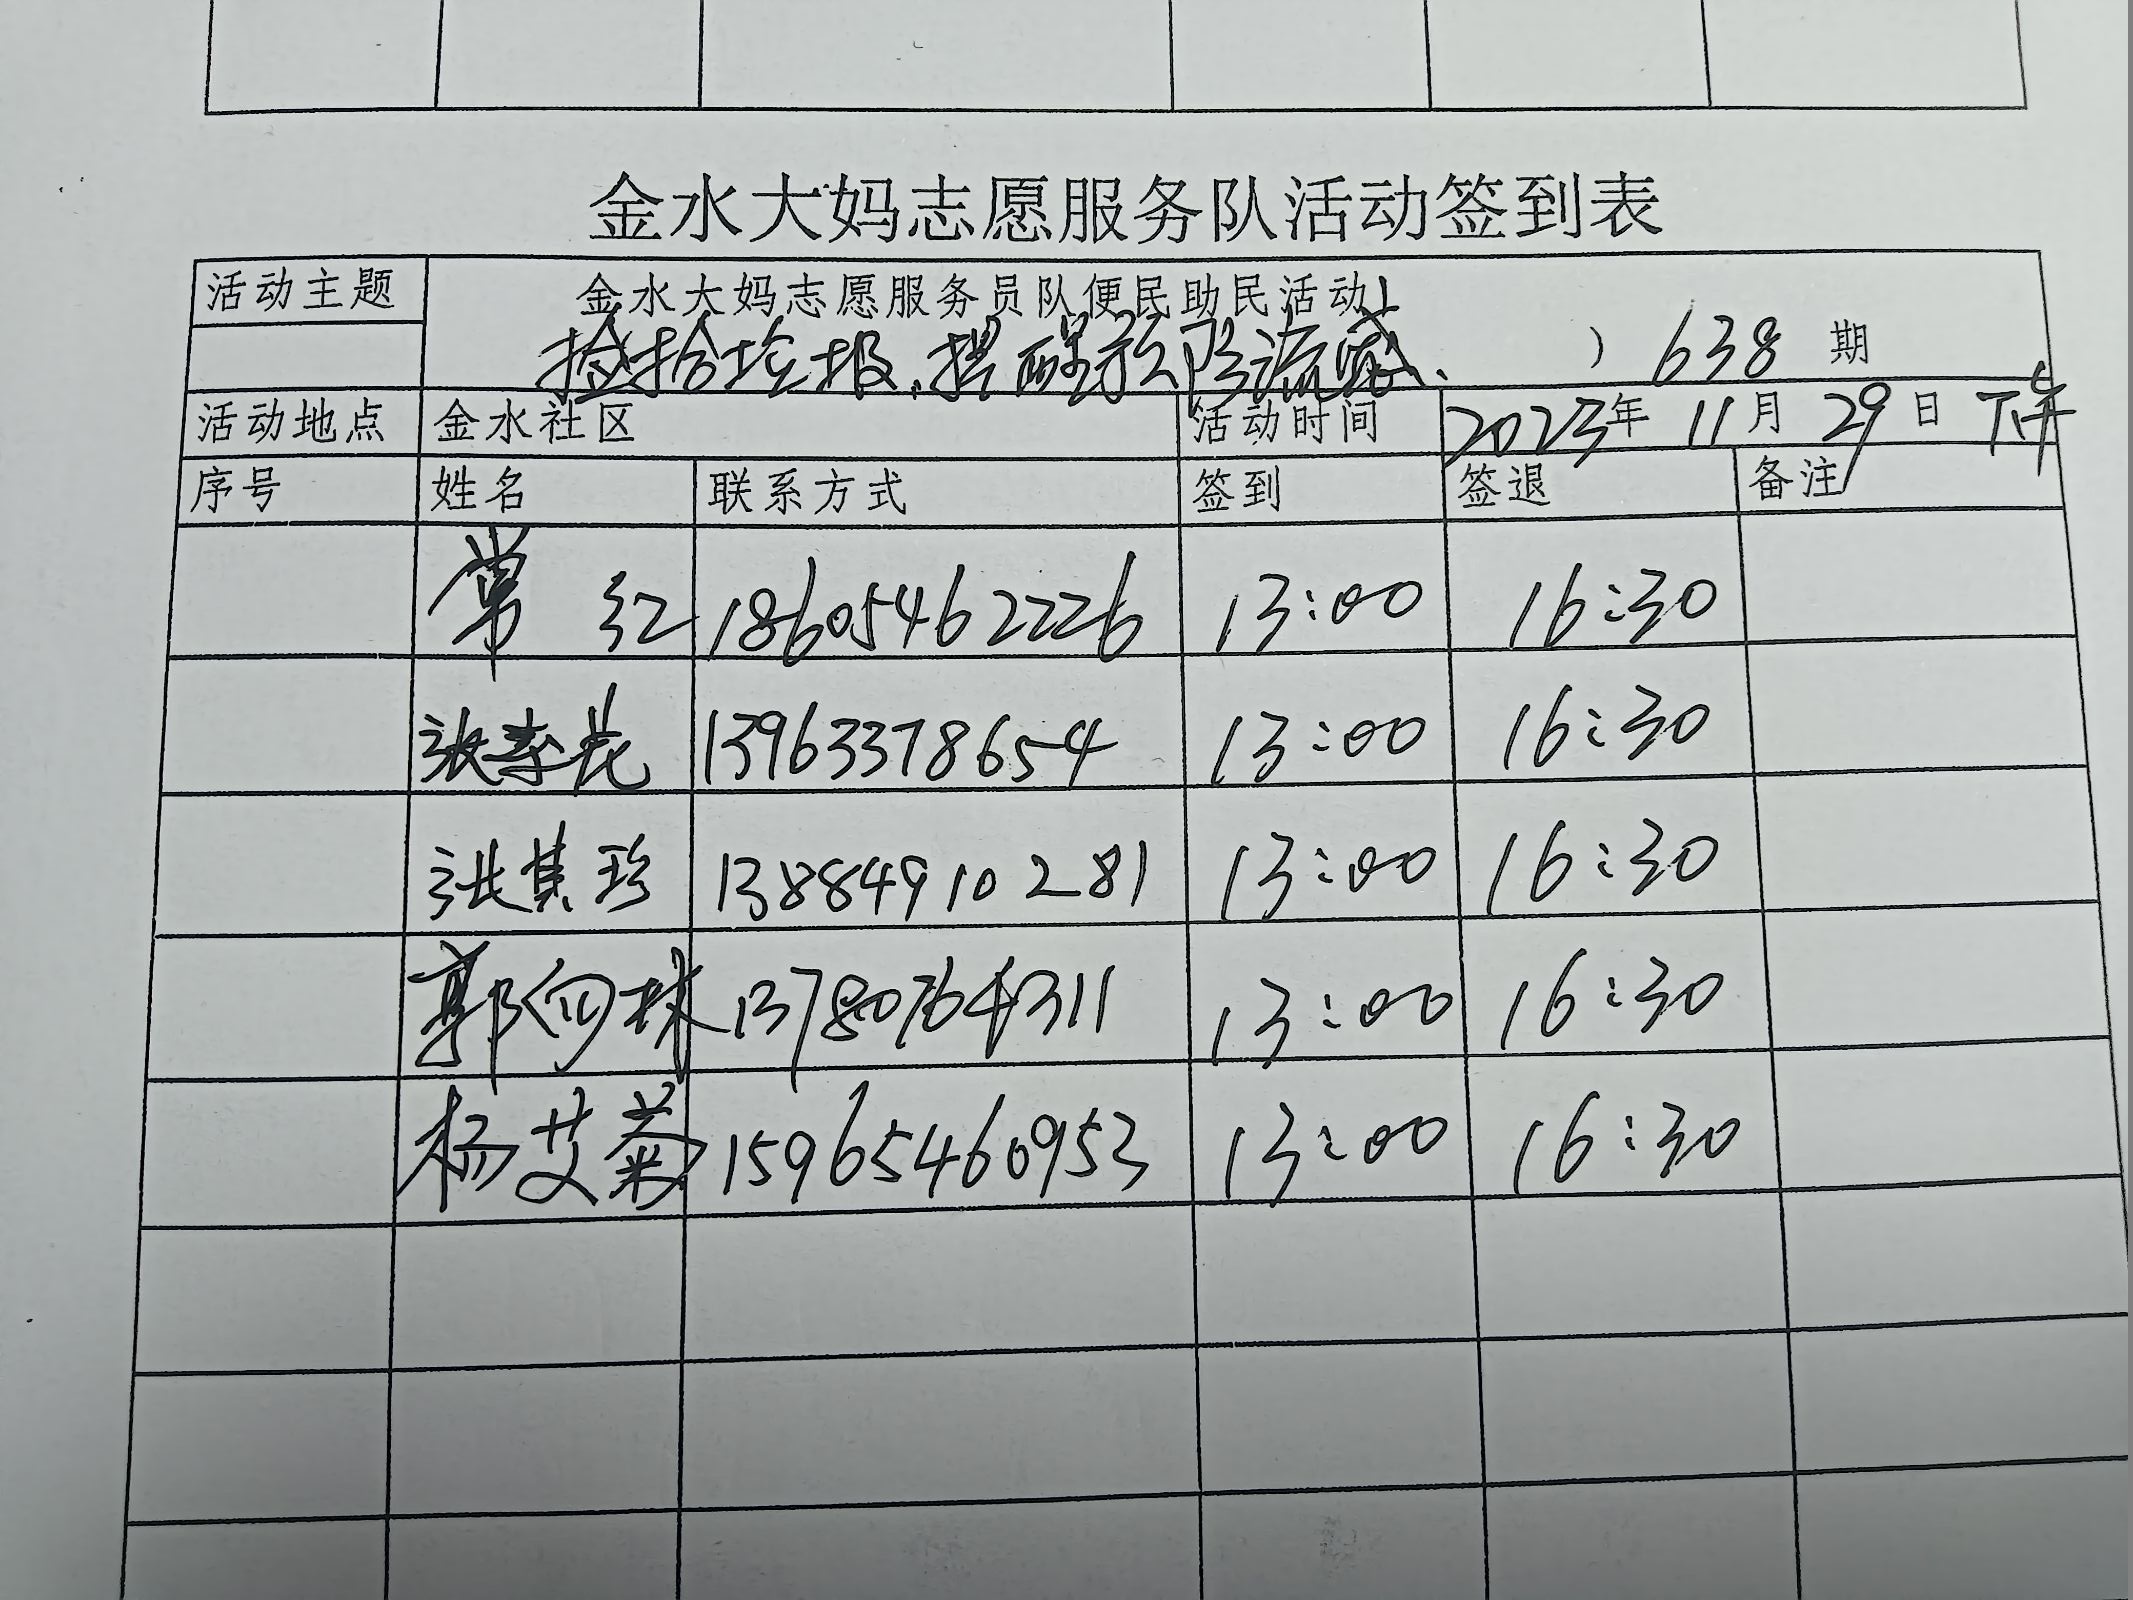 金水大妈志愿服务队活动签到表
活动主题 金水大妈志愿服务员队便民助民活动
捡拾垃圾、提醒预防流感、 ) 638 期
活动地点 金水社区 活动时间 2023年 11月 29日 下午
序号 姓名 联系方式 签到 签退 备注
常红 18605462226 13:00 16:30
张秀花 13963378654 13:00 16:30
张其珍 13884910281 13:00 16:30
郭向林 13780764311 13:00 16:30
杨艾菊 15965460953 13:00 16:30